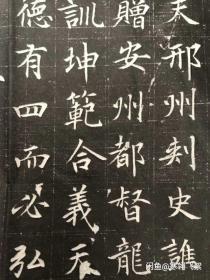 夫邢州刾史譙
贈安州都督龍
訓坤範合義天
徳有四而必弘
闲鱼@